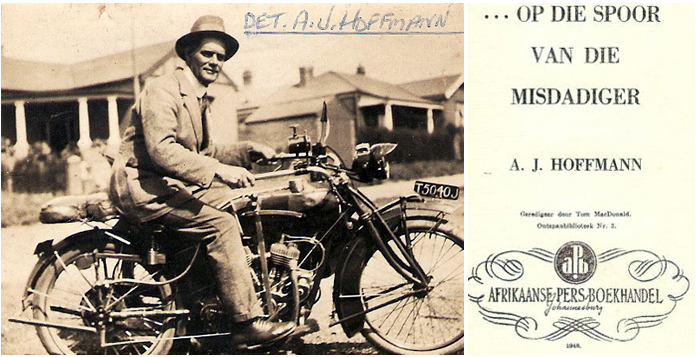 DET. A.J. HOFFMANN
T5040J
... OP DIE SPOOR
VAN DIE
MISDADIGER
A. J. HOFFMANN
Geredigeer deur Tom MacDonald.
Ontspanbiblioteek Nr. 3.
APB
AFRIKAANSE PERS-BOEKHANDEL
Johannesburg